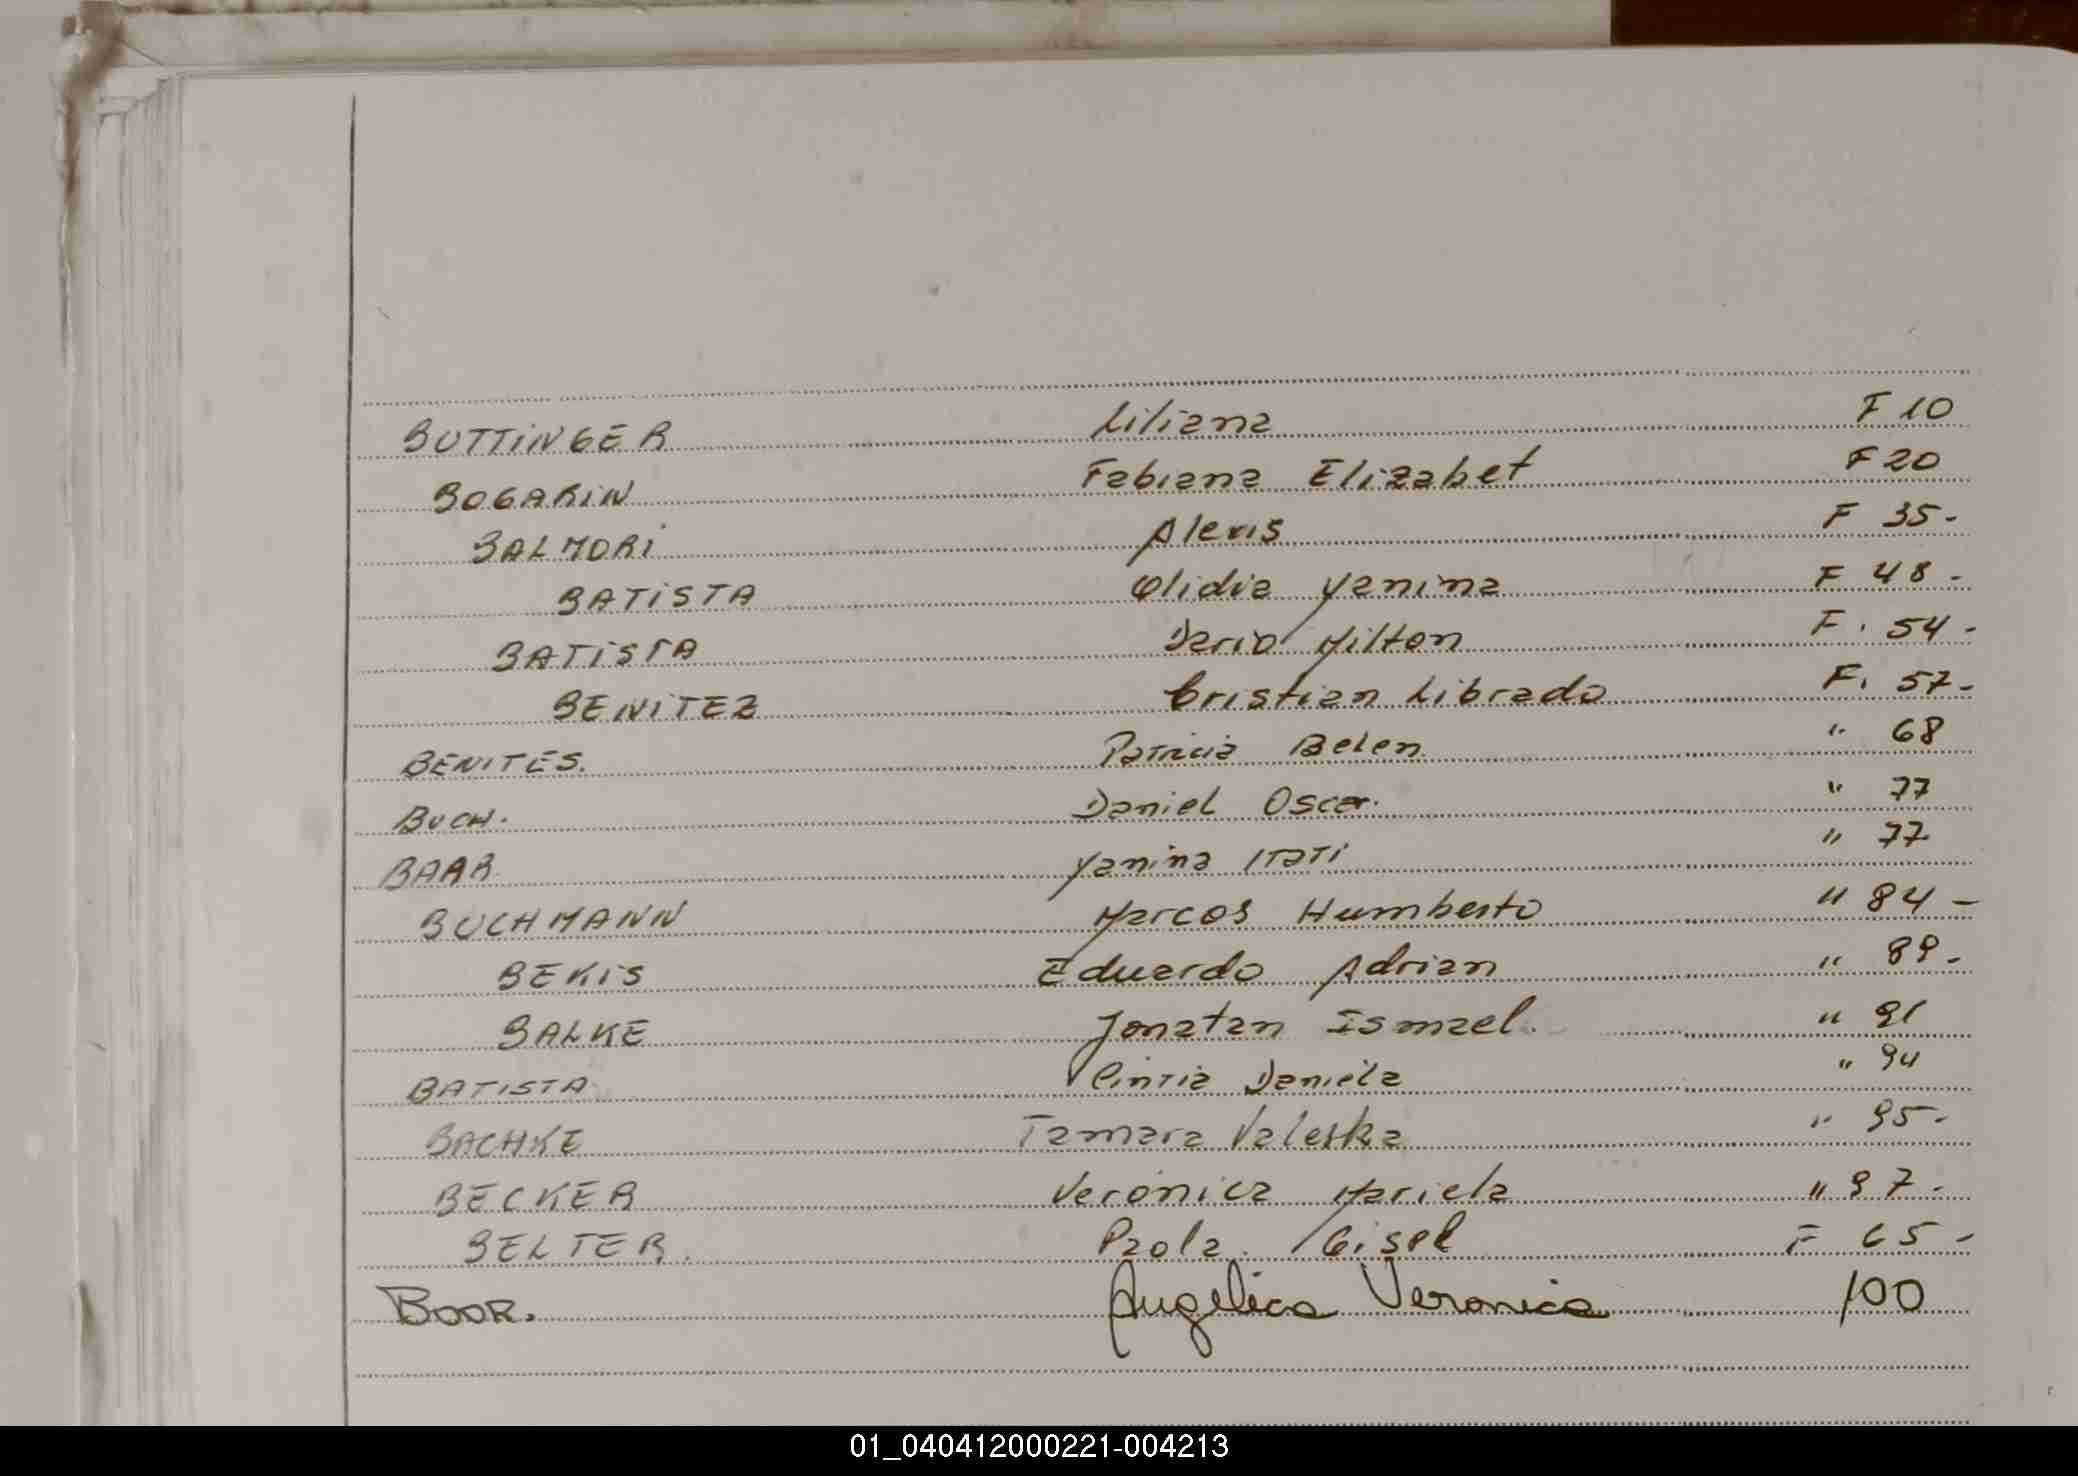 BUTTINGER Liliana F 10
BOGARIN Fabiana Elizabet F 20
BALMORI Alexis F 35-
BATISTA Olidia Yanina F 48-
BATISTA Dario Milton F. 54-
BENITEZ Cristian Librado F. 57-
BENITES. Patricia Belen " 68
BUCH. Daniel Oscar. " 77
BAAR Yanina Itati " 77
BUCHMANN Marcos Humberto " 84-
BEKIS Eduardo Adrian " 89-
BALKE Jonatan Ismael. " 91
BATISTA Cintia Daniela " 94
BACHKE Tamara Valeska " 95-
BECKER Veronica Mariela " 97-
BELTER. Paola. Gisel F 65-
BOOR. Angelica Veronica 100
01_040412000221-004213